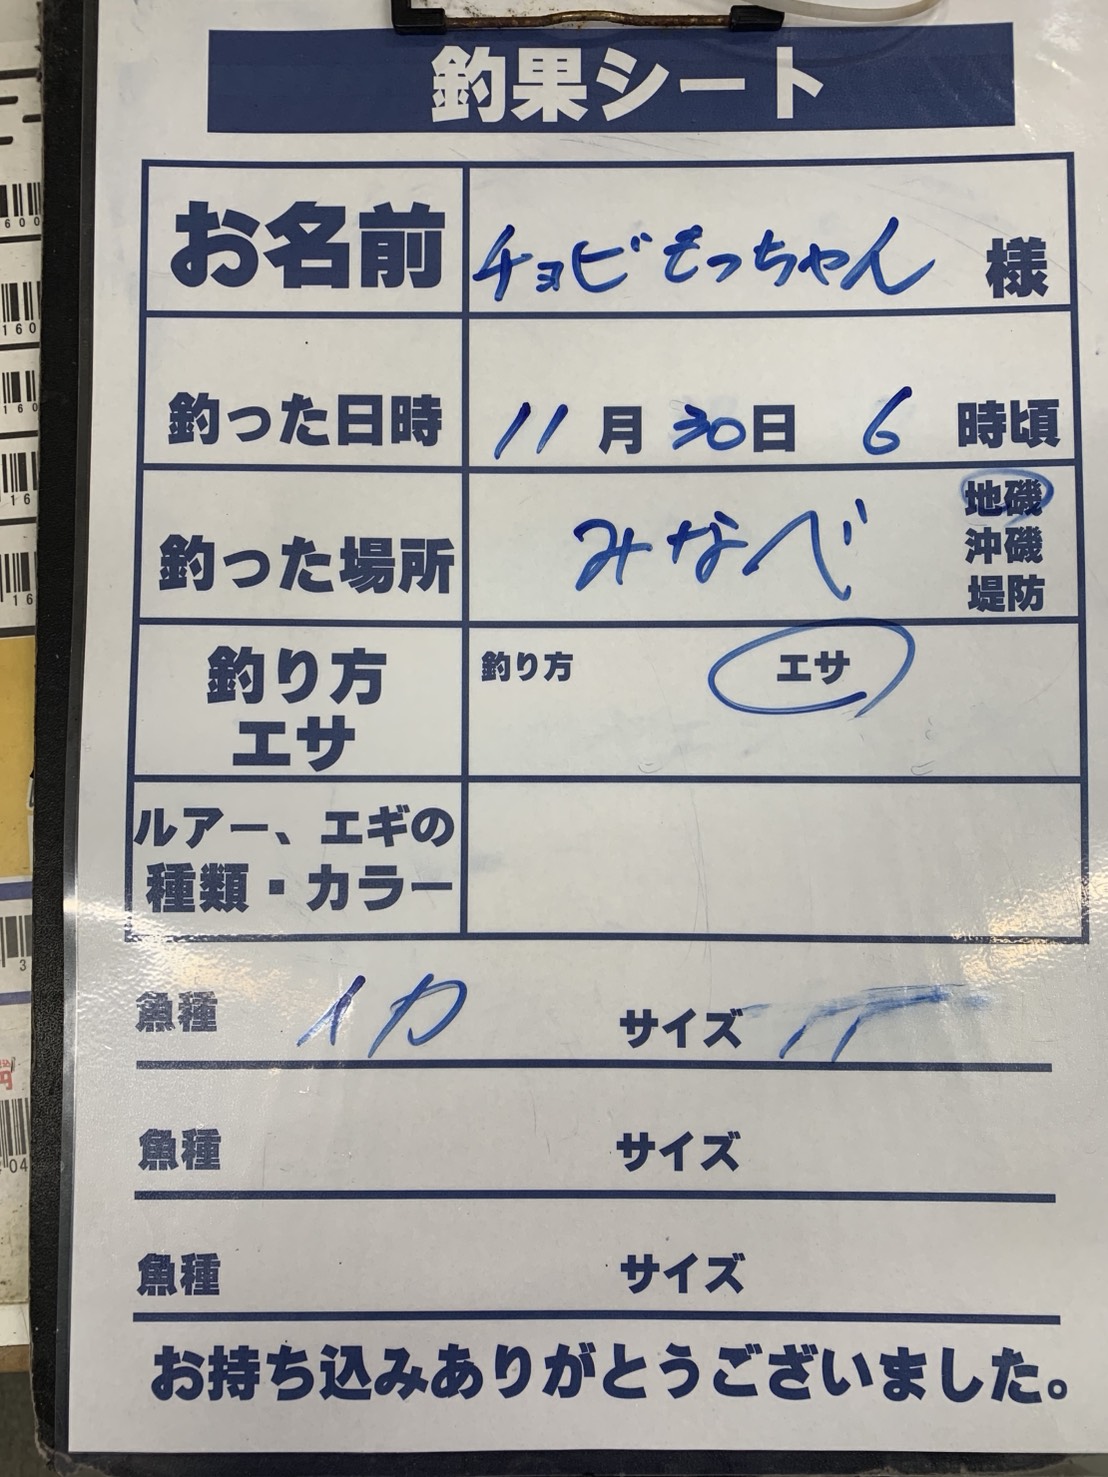 釣果シート
お名前 チョビもっちゃん 様
釣った日時 11月30日 6時頃
釣った場所 みなべ 地磯
沖磯
堤防
釣り方 エサ
釣り方 エサ
ルアー、エギの
種類・カラー
魚種 イカ サイズ
魚種 サイズ
魚種 サイズ
お持ち込みありがとうございました。